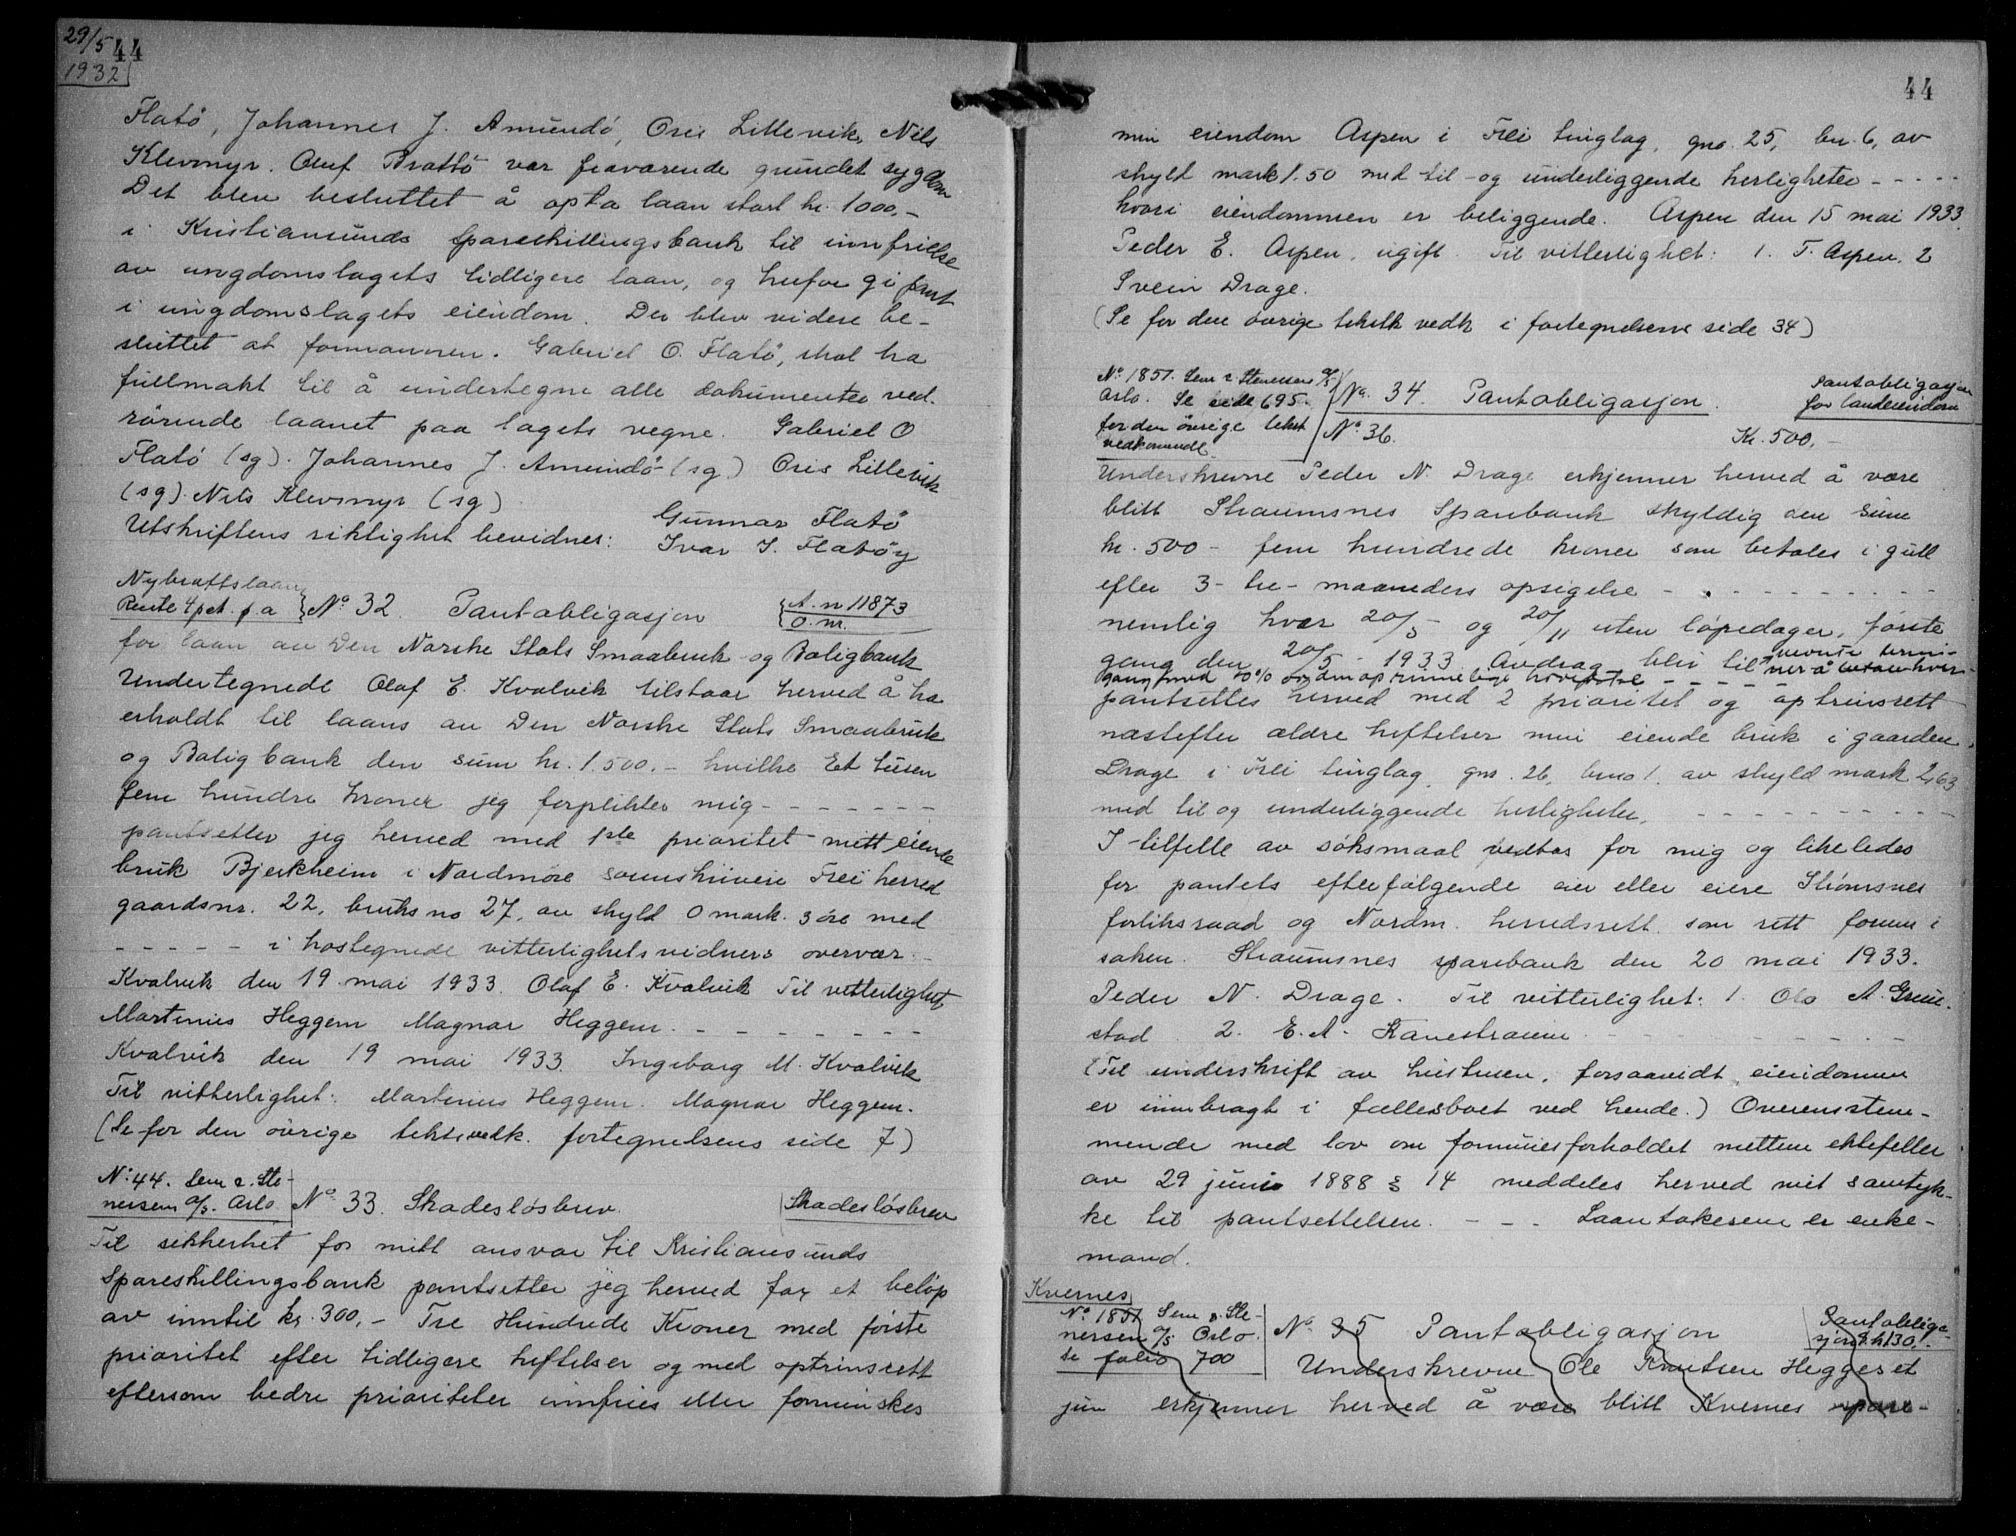 29/5 44
1932
Flatö, Johannes J. Amundö, Oris Lillevik, Nils
Klevmyr. Oluf Brattö var fraværende grundet sygdom
Det blev besluttet å opta laan stort kr. 1000,-
i Kristiansunds Spareskillingsbank til innfrielse
av ungdomslagets tidligere laan, og herfor gi pant
i ungdomslagets eiendom. Der blev videre be-
sluttet at formannen. Gabriel O. Flatö, skal ha
fullmakt til å undertegne alle dokumenter ved.
rörende laanet paa lagets vegne. Gabriel O
Flatö (sg). Johannes J. Amundö (sg) Oris Lillevik
(sg). Nils Klevmyr (sg)
Utskriftens riktighet bevidner: Gunnar Flatö
Ivar J. Flatöy
Nybrottslaan
Rente 4 pct. p.a } No 32. Pantobligasjon { A. nr 11873
O. nr.
for laan av Den Norske Stats Smaabruk og Boligbank
Undertegnede Olaf E. Kvalvik tilstaar herved å ha
erholdt til laans av Den Norske Stats Smaabruk
og Boligbank den sum kr. 1.500.- hvilke Et tusen
fem hundre kroner jeg forplikter mig - - - - - - -
pantsetter jeg herved med 1ste prioritet mitt eiende
bruk Bjerkheim i Nordmöre sorenskriveri Frei herred
gaardsnr. 22, bruksno 27, av skyld 0 mark. 3 öre med
- - - - - i hostegnede vitterlighetsvidners overvær. -
Kvalvik den 19 mai 1933. Olaf E. Kvalvik Til vitterlighet
Martinius Heggem Magnar Heggem. - - - - - - -
Kvalvik den 19 mai 1933. Ingeborg M. Kvalvik
Til vitterlighet: Martinius Heggem. Magnar Heggem.
(Se for den övrige tekst vedk. fortegnelsens side 7)
No 44. Sem & Ste-
nersen A/S. Oslo | No 33. Skadeslösbrev. | Skadeslösbrev
Til sikkerhet for mitt ansvar til Kristiansunds
Spareskillingsbank pantsetter jeg herved for et belöp
av inntil kr. 300,- Tre Hundrede Kroner med förste
prioritet efter tidligere heftelser og med optrinsrett
eftersom bedre prioriteter innfries eller forminskes
44
min eiendom Aspen i Frei tinglag, gno. 25, bn. 6, av
skyld mark 1.50 med til- og underliggende herligheter - - - - -
hvori eiendommen er beliggende. Aspen den 15 mai 1933.
Peder E. Aspen, ugift. Til vitterlighet: 1. T. Aspen. 2
Svein Drage.
(Se for den övrige tekstk vedk i fortegnelsens side 34)
No 1851. Sem & Stenersen A/S
Oslo. Se side 695.
for den övrige tekst
vedkommende. | No. 34 Pantobligasjon. Pantobligasjon
for landeiendom
No 36. Kr. 500,-
Underskrevne Peder N. Drage erkjenner herved å være
blitt Straumsnes Sparebank skyldig den sum
kr. 500 - fem hundrede kroner som betales i gull
efter 3 - tre - maaneders opsigelse - - - - - - - - - -
nemlig hver 20/5 og 20/11 uten löpedager, förste
gang den 20/5 - 1933. Avdrag blir til nevnte termi-
gang med 10 % av den oprinnelige hovedstol - - - - ner å betale hver
pantsettes herved med 2 prioritet og optrinsrett
næstefter ældre heftelser min eiende bruk i gaarden
Drage i Frei tinglag, gno. 26, bno 1. av skyld mark 2,63
med til og underliggende herligheter, - - - - - - - - -
I tilfelle av söksmaal vedtas for mig og likeledes
for pantets efterfölgende eier eller eiere Strömsnes
forliksraad og Nordm. herredsrett som rett forum i
saken. Straumsnes sparebank den 20 mai 1933.
Peder N. Drage. Til vitterlighet: 1. Ola A. Grim-
stad 2. E. A. Kanestraum - - - - - -
(Til underskrift av hustruen, forsaavidt eiendommen
er innbragt i fællesboet ved hende.) Overensstem-
mende med lov om formuesforholdet mellem ektefeller
av 29 juni 1888 § 14 meddeles herved mit samtyk-
ke til pantsettelsen. - - - Laantakeren er enke-
mand.
Kvernes
No 1851 Sem & Ste-
nersen A/S Oslo.
Se folio 700 | No. 35 Pantobligasjon | Pantobliga-
sjon k. 130.-
Underskrevne Ole Knutsen Heggeset
jun erkjenner herved å være blitt Kvernes spare-